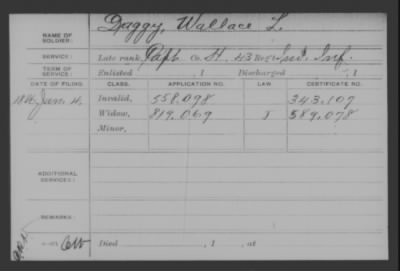 NAME OF SOLDIER: Daggy, Wallace L.
SERVICE: Late rank, Capt. Co. H, 43 Reg't Ind. Inf.
TERM OF SERVICE: Enlisted , 1 Discharged , 1
DATE OF FILING. CLASS. APPLICATION NO. LAW CERTIFICATE NO.
Jan. 4, Invalid, 558.098 343.107
Widow, 819.069 589.078
Minor,
ADDITIONAL SERVICES:
REMARKS:
Died , 1 , at